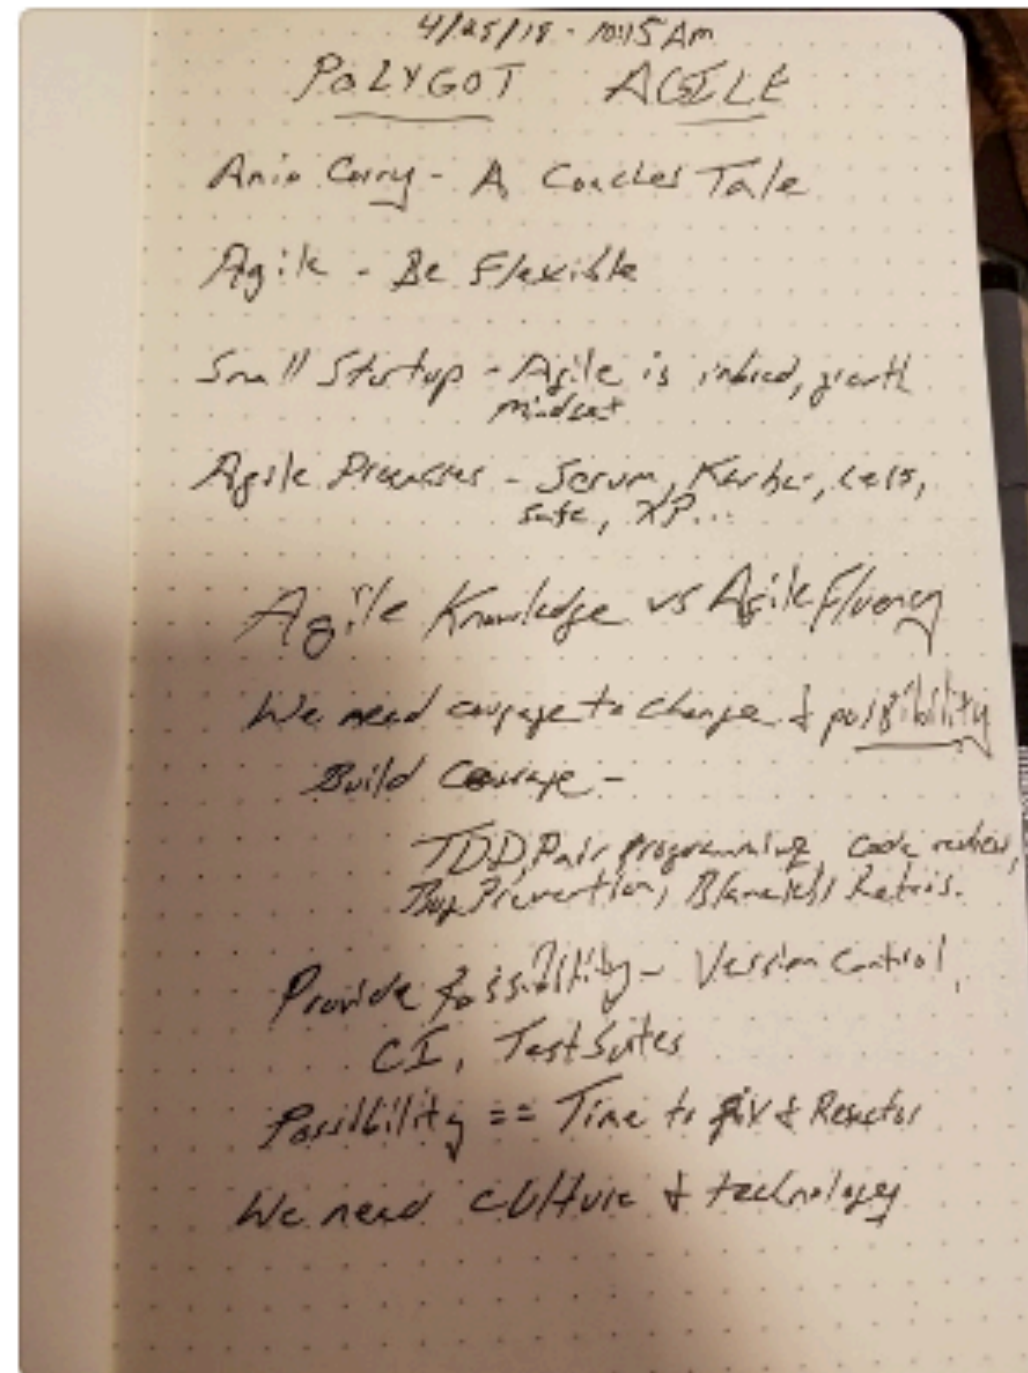 4/25/18 - 10:15 Am
POLYGOT AGILE
Anio Corry - A Coaches Tale
Agile - Be Flexible
Small Startup - Agile is inbred, growth
mindset
Agile Processes - Scrum, Kanban, LeSS,
Safe, XP...
Agile Knowledge vs Agile Fluency
We need courage to change & possibility
Build Courage -
TDD, Pair programming, code reviews,
Bug Prevention, Blameless Retros.
Provide Possibility - Version Control,
CI, Test Suites
Possibility == Time to fix & Refactor
We need culture & technology